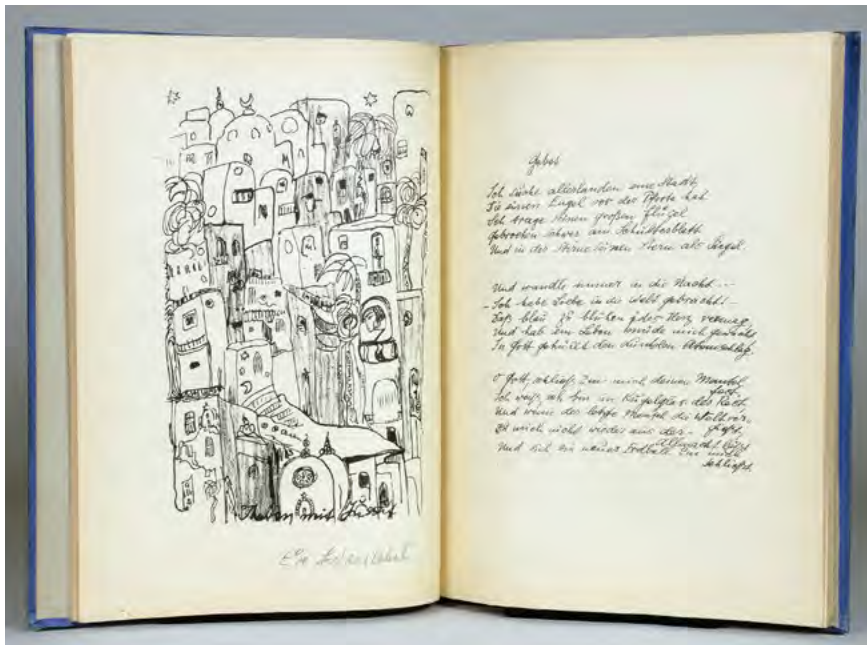 Theben mit Jussuf
Gebet
Ich suche allerlanden eine Stadt,
Die einen Engel vor der Pforte hat
Ich trage seinen großen Flügel
Gebrochen schwer am Schulterblatt
Und in der Stirne seinen Stern als Siegel.
Und wandle immer in die Nacht ---
– Ich habe Liebe in die Welt gebracht! –
Daß blau zu blühen jedes Herz vermag
Und hab ein Leben müde mich gewacht
In Gott gehüllt den dunklen Atemschlag.
O Gott, schließ um mich deinen Mantel
fest
Ich weiß, ich bin im Kugelglas der Rest
Und wenn der letzte Mensch die Welt ver-
gießt,
Du mich nicht wieder aus der
Allmacht läßt
Und sich ein neuer Erdball um mich
schließt.